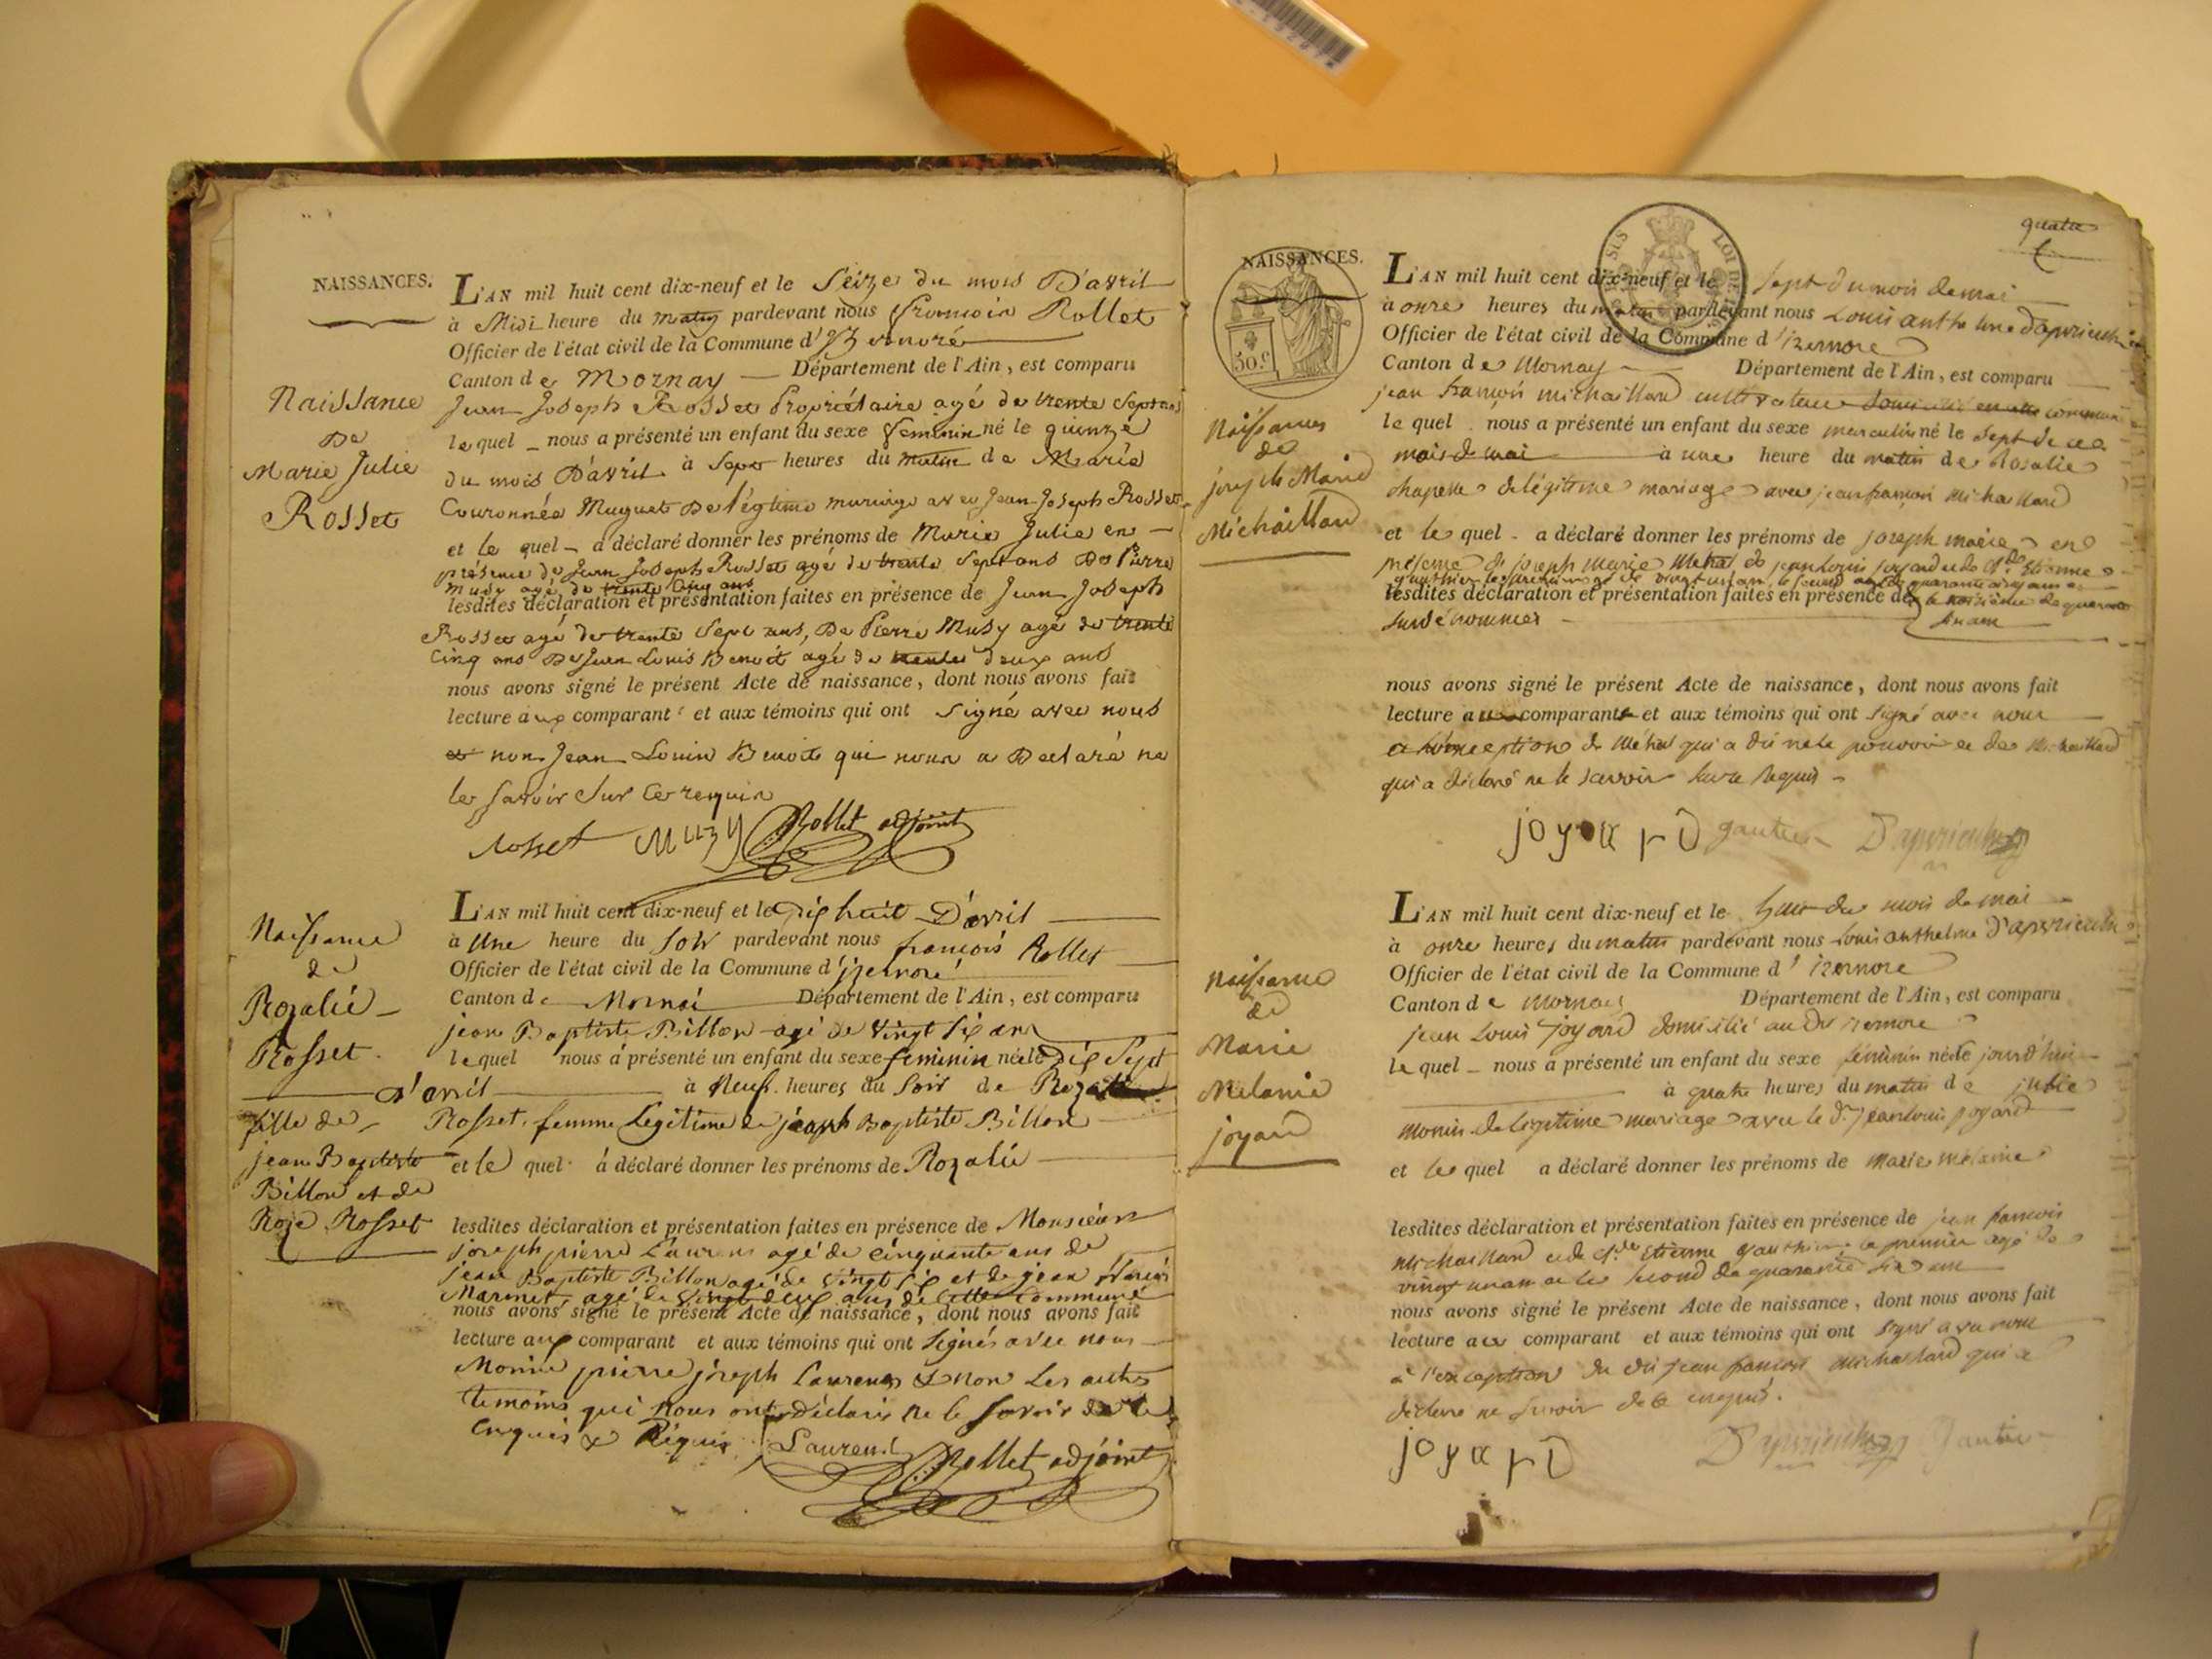 NAISSANCES.
Naissance
De
Marie Julie
Rosset
L'AN mil huit cent dix-neuf et le Seize du mois D'avril
à Midi heure du matin pardevant nous François Rollet
Officier de l'état civil de la Commune d'Izernore
Canton de Mornay Département de l'Ain, est comparu
Jean Joseph Rosset Propriétaire agé de trente Sept ans
lequel nous a présenté un enfant du sexe feminin né le quinze
du mois D'avril à Sept heures du matin de Marie
Couronnée Muguet De légitime mariage avec Jean Joseph Rosset
et le quel a déclaré donner les prénoms de Marie Julie en
présence de Jean Joseph Rosset agé de trente Sept ans De Pierre
Musy agé de trente Cinq ans
lesdites déclaration et présentation faites en présence de Jean Joseph
Rosset agé de trente Sept ans, De Pierre Musy agé de trente
Cinq ans De Jean Louis Benoit agé de trente deux ans
nous avons signé le présent Acte de naissance, dont nous avons fait
lecture aux comparant et aux témoins qui ont Signé avec nous
et non Jean Louis Benoit qui nous a Declaré ne
le savoir Sur Ce requis
rosset Muzy Rollet adjoint
Naissance
de
Rozalie
Rosset
fille de
jean Baptiste
Billon et de
Roze Rosset
L'AN mil huit cent dix-neuf et le dix huit D'avril
à Une heure du Soir pardevant nous françois Rollet
Officier de l'état civil de la Commune d'izernore
Canton de Mornai Département de l'Ain, est comparu
jean Baptiste Billon agé de vingt six ans
lequel nous a présenté un enfant du sexe feminin née le Dix Sept
d'avril à Neuf heures du Soir de
Rosset femme Legitime de joseph Baptiste Billon
et le quel à déclaré donner les prénoms de Rozalie
lesdites déclaration et présentation faites en présence de Monsieur
joseph pierre Laurens agé de cinquante ans de
jean Baptiste Billon agé de vingt six et de jean françois
Marmet agé de vingt deux ans de cette Commune
nous avons signé le présent Acte de naissance, dont nous avons fait
lecture aux comparant et aux témoins qui ont Signés avec nous
pierre joseph Laurens & non Les autres
temoins qui nous ont déclarés ne le savoir de ce
enquis & Requis Laurens
Rollet adjoint
quatre
NAISSANCES.
50.c
Naissance
de
joseph Marie
Michaillard
L'AN mil huit cent dix-neuf et le Sept du mois de mai
à onze heures du matin pardevant nous Louis anthelme
Officier de l'état civil de la Commune d'izernore
Canton de Mornay Département de l'Ain, est comparu
jean françois michaillard cultivateur domicilié en cette commune
le quel nous a présenté un enfant du sexe masculin né le Sept de ce
mois de mai à une heure du matin de Rosalie
chapelle de légitime mariage avec jean françois michaillard
et le quel a déclaré donner les prénoms de joseph marie en
présence de joseph Marie et jean louis joyard et de Etienne
lesdites déclaration et présentation faites en présence de
susdénommés
nous avons signé le présent Acte de naissance, dont nous avons fait
lecture aux comparants et aux témoins qui ont signé avec nous
qui a dit ne le pouvoir et de Michaillard
qui a déclaré ne le savoir de ce requis
joyard gautier
Naissance
de
Marie
Melanie
joyard
L'AN mil huit cent dix-neuf et le huit du mois de mai
à onze heures du matin pardevant nous Louis anthelme
Officier de l'état civil de la Commune d'izernore
Canton de Mornay Département de l'Ain, est comparu
jean Louis joyard domicilié au dit izernore
le quel nous a présenté un enfant du sexe feminin née le jourd'hui
à quatre heures du matin de julie
monin de légitime mariage avec le d. jean louis joyard
et le quel a déclaré donner les prénoms de Marie mélanie
lesdites déclaration et présentation faites en présence de jean francois
michaillard et de Etienne gauthier le premier agé de
vingt un an et le second de quarante six ans
nous avons signé le présent Acte de naissance, dont nous avons fait
lecture aux comparant et aux témoins qui ont signé avec nous
à l'exception du dit jean francois michaillard qui a
déclaré ne savoir de ce enquis.
joyard gautier